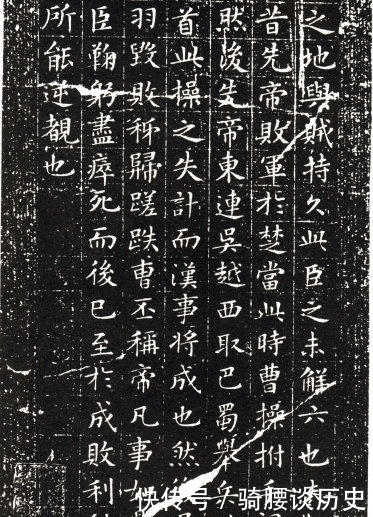 之地與賊持久此臣之未解六也夫
昔先帝敗軍於楚當此時曹操拊
然後先帝東連吳越西取巴蜀舉兵
首此操之失計而漢事將成也然
羽毀敗秭歸蹉跌曹丕稱帝凡事
臣鞠躬盡瘁死而後已至於成敗利
所能逆覩也
快传号/骑腰谈历史